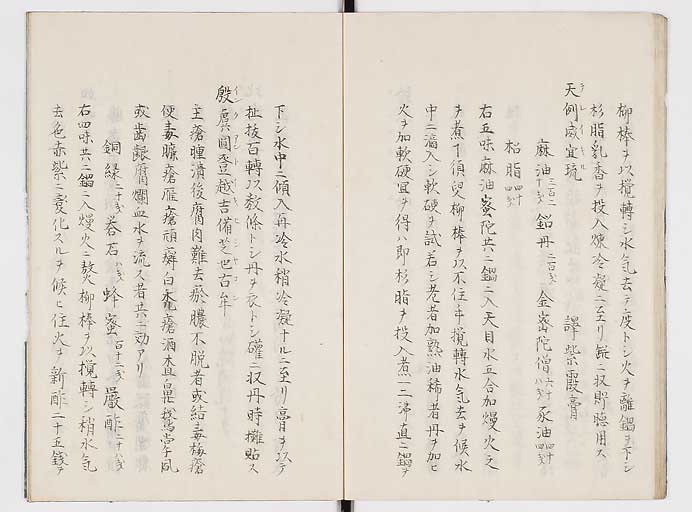 柳棒ヲ以攪轉シ水氣去テ度トシ火ヲ離鍋ヲ下シ
杉脂乳香ヲ投入煉冷凝ニ至リ磁ニ収貯聴用ス
天例咸宜琉 譯紫霞膏
麻油 鉛丹 金密陀僧 豕油
松脂
右五味麻油蜜陀共ニ鍋ニ入天目水五合加熳火之
ヲ煮丁須臾柳棒ヲ以不住手攪轉水氣去ヲ候水
中ニ滴入シ軟硬ヲ試若シ老者加熟油稀者丹ヲ加ヒ
火ヲ加軟硬宜ヲ得ハ即杉脂ヲ投入煮一二沸直ニ鍋ヲ
下シ水中ニ傾入再冷水稍冷凝ナルニ至リ膏ヲ以テ
扯拔百轉以数條トシ丹ヲ衣トシ礶ニ収丹時攤貼ス
殷虞圓登越吉備芝也古牟
主瘡腫潰後腐肉難去瘀膿不脱者或結毒梅瘡
便毒臁瘡雁瘡頑癬白禿瘡酒査鼻鵞掌風
或齒齦腐爛血水ヲ流ス者共ニ効アリ
銅緑 二十戋 巻石 八戋 蜂蜜 百十二戋 嚴酢 二十八戋
右四味共ニ鍋ニ入熳火ニ熬柳棒ヲ以攪轉シ稍水氣
去色赤紫ニ変化スルヲ候ヒ住火ヲ新酢二十五錢ヲ